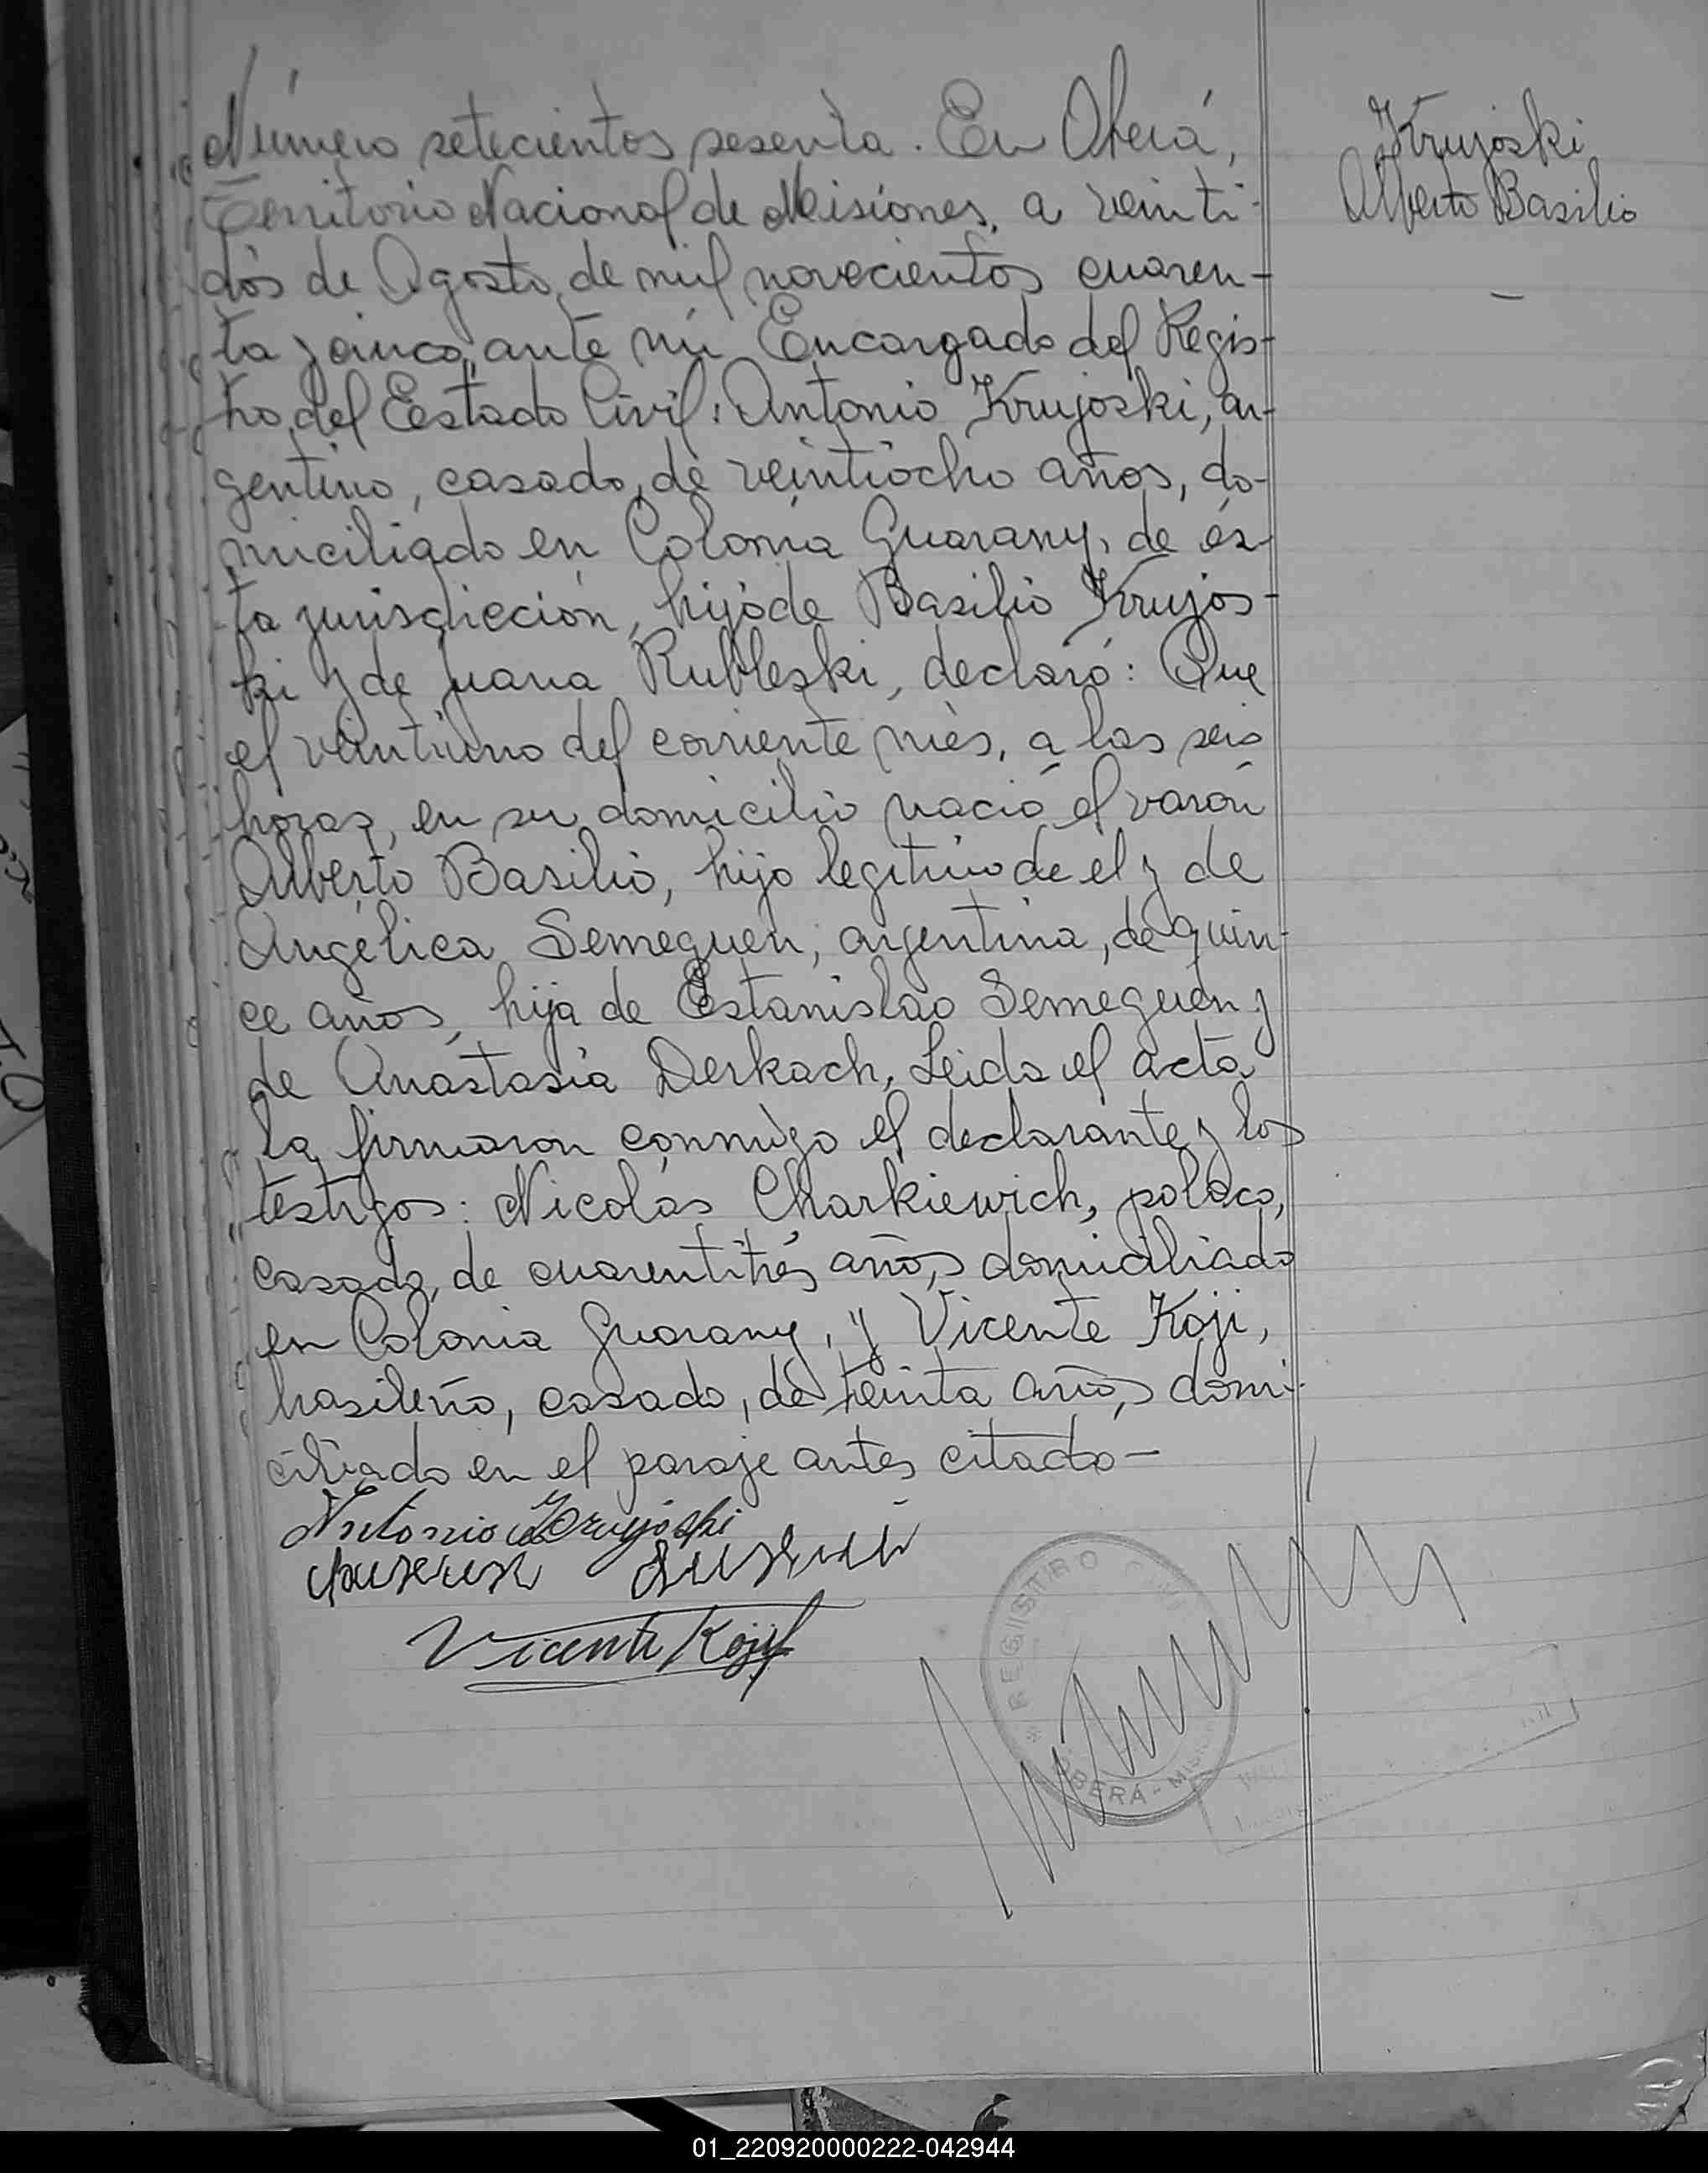 Número setecientos sesenta. En Oberá,
Territorio Nacional de Misiones, a veinti-
dós de Agosto de mil novecientos cuaren-
ta y cinco, ante mí Encargado del Regis-
tro del Estado Civil: Antonio Krujoski, ar-
gentino, casado, de veintiocho años, do-
miciliado en Colonia Guarany, de és-
ta jurisdicción, hijo de Basilio Krujos-
ki y de Juana Rubleski, declaró: Que
el veintiuno del corriente mès, a las seis
horas, en su domicilio nació el varón
Alberto Basilio, hijo legitimo de el y de
Angélica Semeguen, argentina, de quin-
ce años, hija de Estanislao Semeguen y
de Anastasia Derkach. Leida el acta
la firmaron conmigo el declarante y los
testigos: Nicolás Charkiewich, polaco,
casado, de cuarentitrés años, domiciliado
en Colonia Guarany, y Vicente Koji,
brasileño, casado, de treinta años, domi-
ciliado en el paraje antes citado—
Krujoski
Alberto Basilio
Antonio Krujoski
Vicente Koji
REGISTRO CIVIL
OBERÁ - MIS
01_220920000222-042944